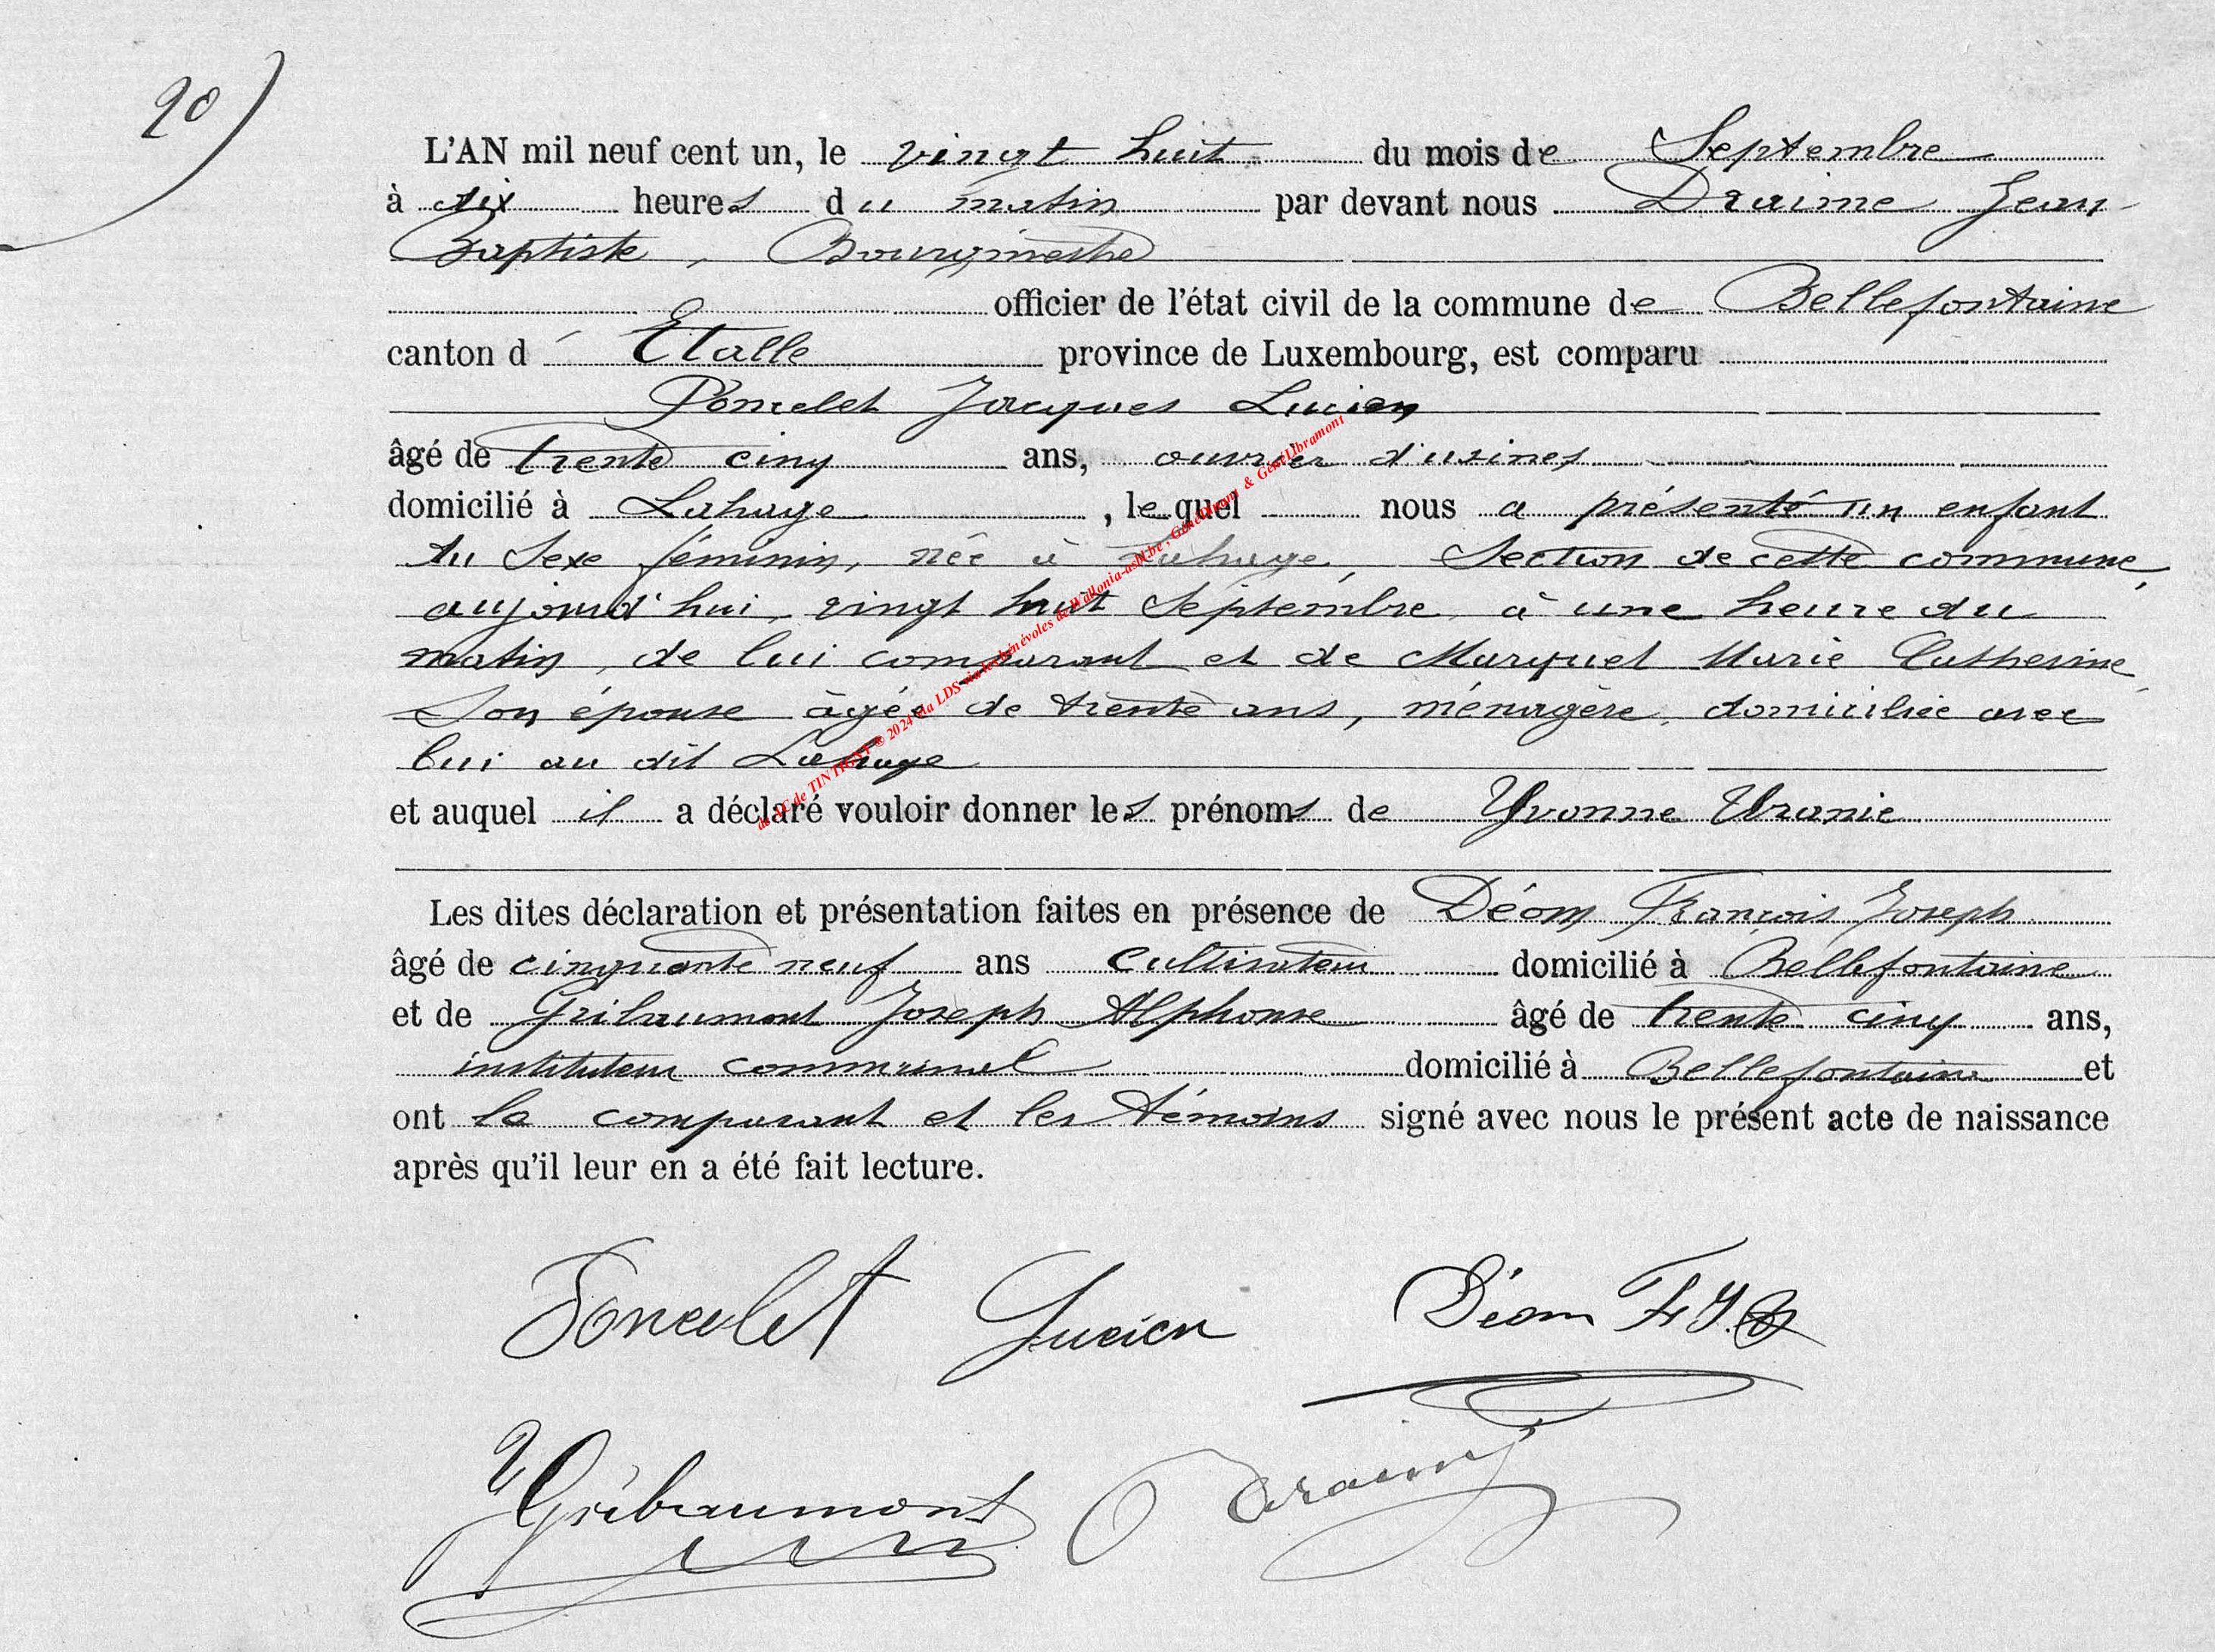 20)
L'AN mil neuf cent un, le vingt huit du mois de Septembre
à dix heures du matin par devant nous Draime Jean
Baptiste, Bourgmestre
officier de l'état civil de la commune de Bellefontaine
canton d'Etalle province de Luxembourg, est comparu
Poncelet Jacques Lucien
âgé de trente cinq ans, ouvrier d'usines
domicilié à Lahage, lequel nous a présenté un enfant
du Sexe féminin, née à Lahage, Section de cette commune,
aujourd'hui, vingt huit Septembre à une heure du
matin, de lui comparant et de Marquet Marie Catherine,
Son épouse âgée de trente ans, ménagère, domiciliée avec
lui au dit Lahage
et auquel il a déclaré vouloir donner les prénoms de Yvonne Uranie
Les dites déclaration et présentation faites en présence de Déom François Joseph
âgé de cinquante neuf ans Cultivateur domicilié à Bellefontaine
et de Gribaumont Joseph Alphonse âgé de trente cinq ans,
instituteur communal domicilié à Bellefontaine et
ont le comparant et les témoins signé avec nous le présent acte de naissance
après qu'il leur en a été fait lecture.
Poncelet Lucien Déom F J
Gribaumont Draime
de TINTIGNY © 2024 via LDS via les bénévoles de Wallonia-asbl.be, & GénéLibramont